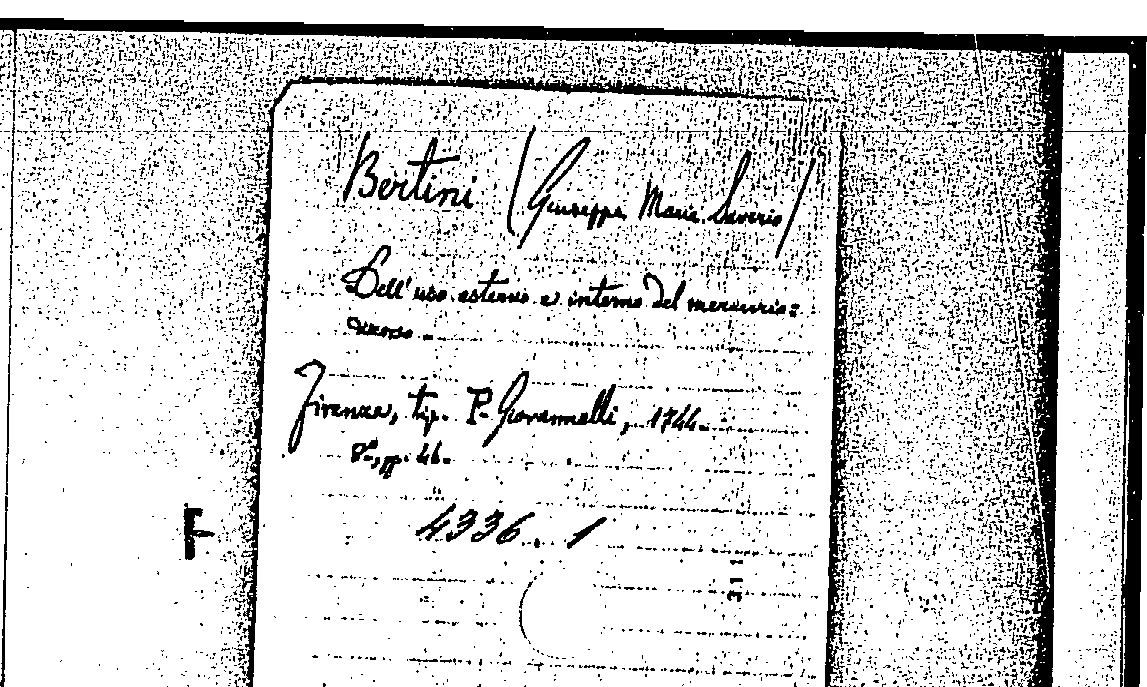 Bertini (Giuseppe Maria Saverio)
Dell'uso esterno e interno del mercurio:
Firenze, tip. P. Giovannelli, 1744.
8°, pp. 46.
4336. 1
F